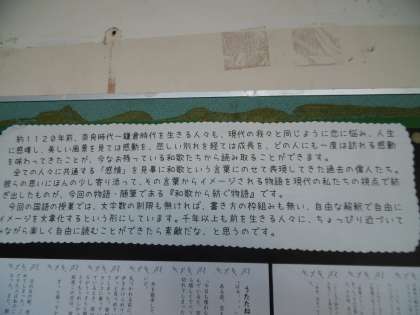 約1120年前、奈良時代～鎌倉時代を生きる人々も、現代の我々と同じように恋に悩み、人生
に感嘆し、美しい風景を見ては感動を、悲しい別れを経ては成長を、どの人にも一度は訪れる感動
を味わってきたことが、今なお残っている和歌たちから読み取ることができます。
全ての人々に共通する「感情」を見事に和歌という言葉にのせて表現してきた過去の偉人たち。
彼らの思いにほんの少し寄り添って、その言葉からイメージされる物語を現代の私たちの視点で紡
ぎ出したものが、今回の物語・随筆である『和歌から紡ぐ物語』です。
今回の国語の授業では、文字数の制限も無ければ、書き方の枠組みも無い、自由な解釈で自由に
イメージを文章化するという形にしています。千年以上も前を生きる人々に、ちょっぴり近づいて
みながら楽しく自由に読むことができたら素敵だな、と思うのです。
うたたね